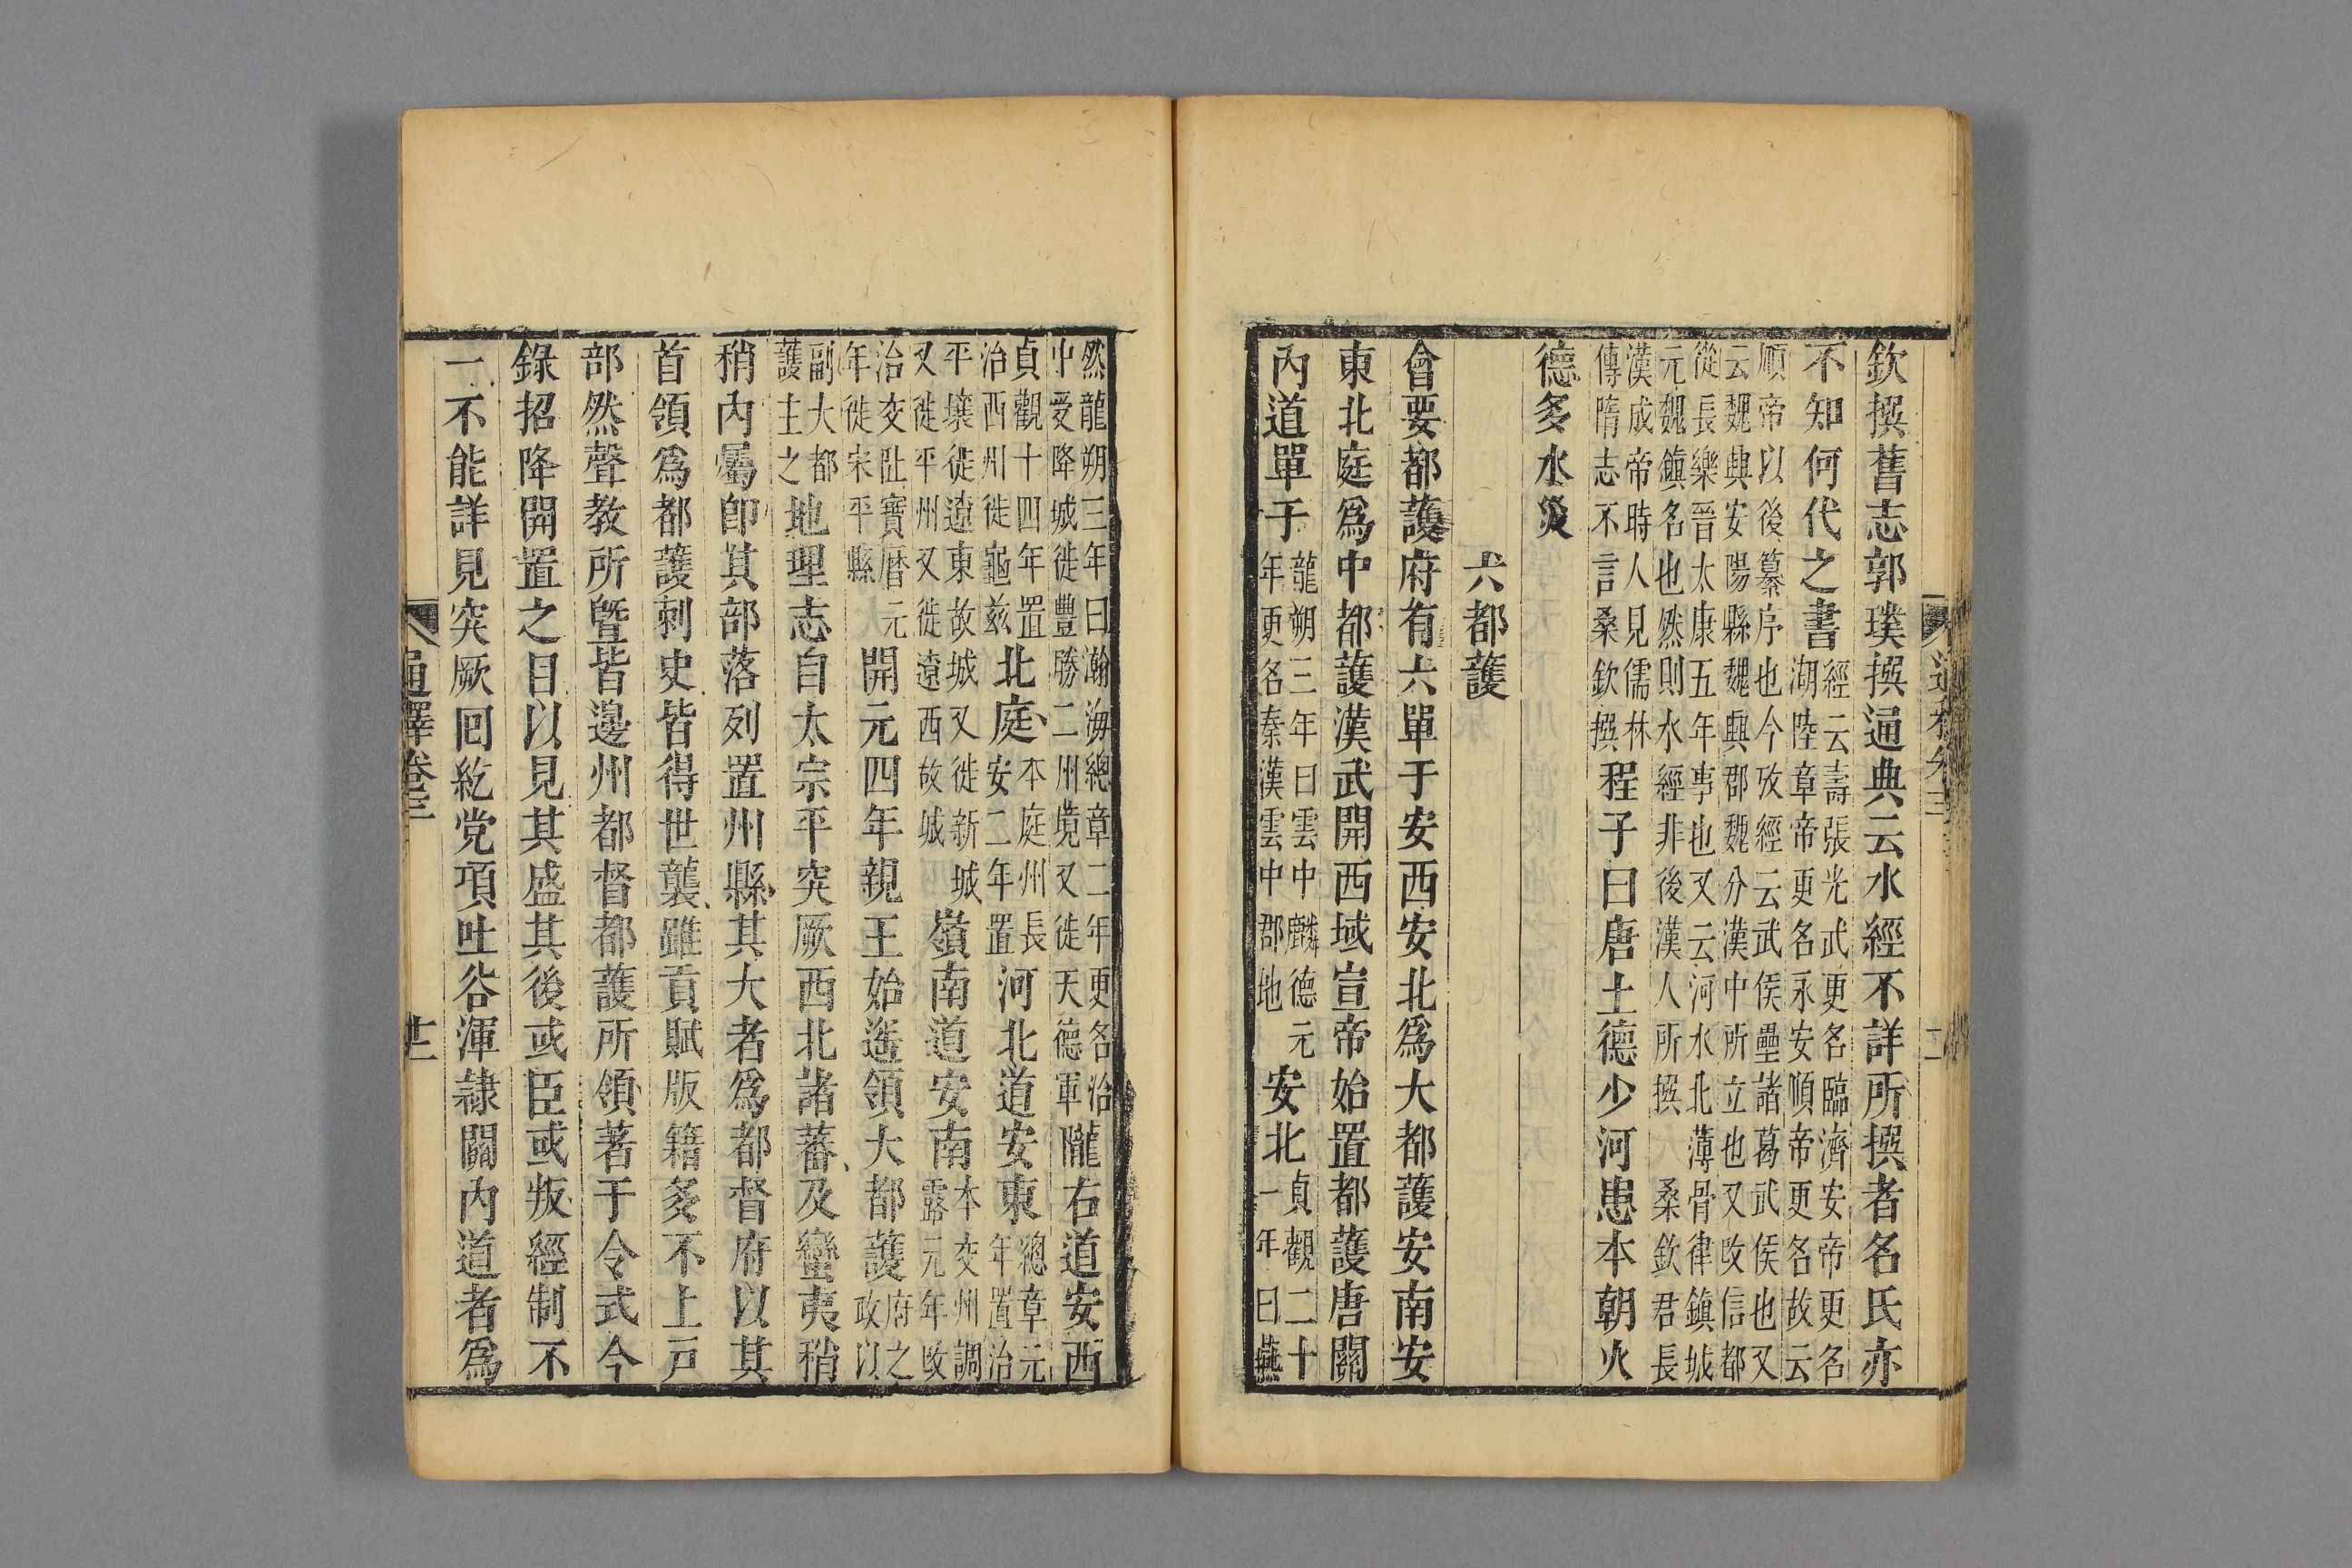 欽撰舊志郭璞撰通典云水經不詳所撰者名氏亦
不知何代之書經云壽張光武更名臨濟安帝更名
湖陸章帝更名永安順帝更名故云
順帝以後纂序也今攷經云武侯壘諸葛武侯也又
云魏興安陽縣魏興郡魏分漢中所立也又改信都
從長樂晉太康五年事也又云河水北薄骨律鎮城
元魏鎮名也然則水經非後漢人所撰 桑欽君長
漢成帝時人見儒林
傳隋志不言桑欽撰程子曰唐土德少河患本朝火
德多水災
六都護
會要都護府有六單于安西安北為大都護安南安
東北庭為中都護漢武開西域宣帝始置都護唐關
內道單于龍朔三年曰雲中麟德元
年更名秦漢雲中郡地安北貞觀二十
一年曰燕
然龍朔三年曰瀚海總章二年更名治
中受降城徙豐勝二州境又徙天德軍隴右道安西
貞觀十四年置
治西州徙龜兹北庭本庭州長
安二年置河北道安東總章元
年置治
平壤徙遼東故城又徙新城
又徙平州又徙遼西故城嶺南道安南本交州調
露元年改
治交阯寶曆元
年徙宋平縣開元四年親王始遥領大都護府之
政以
副大都
護主之地理志自太宗平突厥西北諸蕃及蠻夷稍
稍內屬卽其部落列置州縣其大者為都督府以其
首領為都護刺史皆得世襲雖貢賦版籍多不上戸
部然聲教所曁皆邊州都督都護所領著于令式今
錄招降開置之目以見其盛其後或臣或叛經制不
一不能詳見突厥回紇党項吐谷渾隸關內道者為
通釋卷三